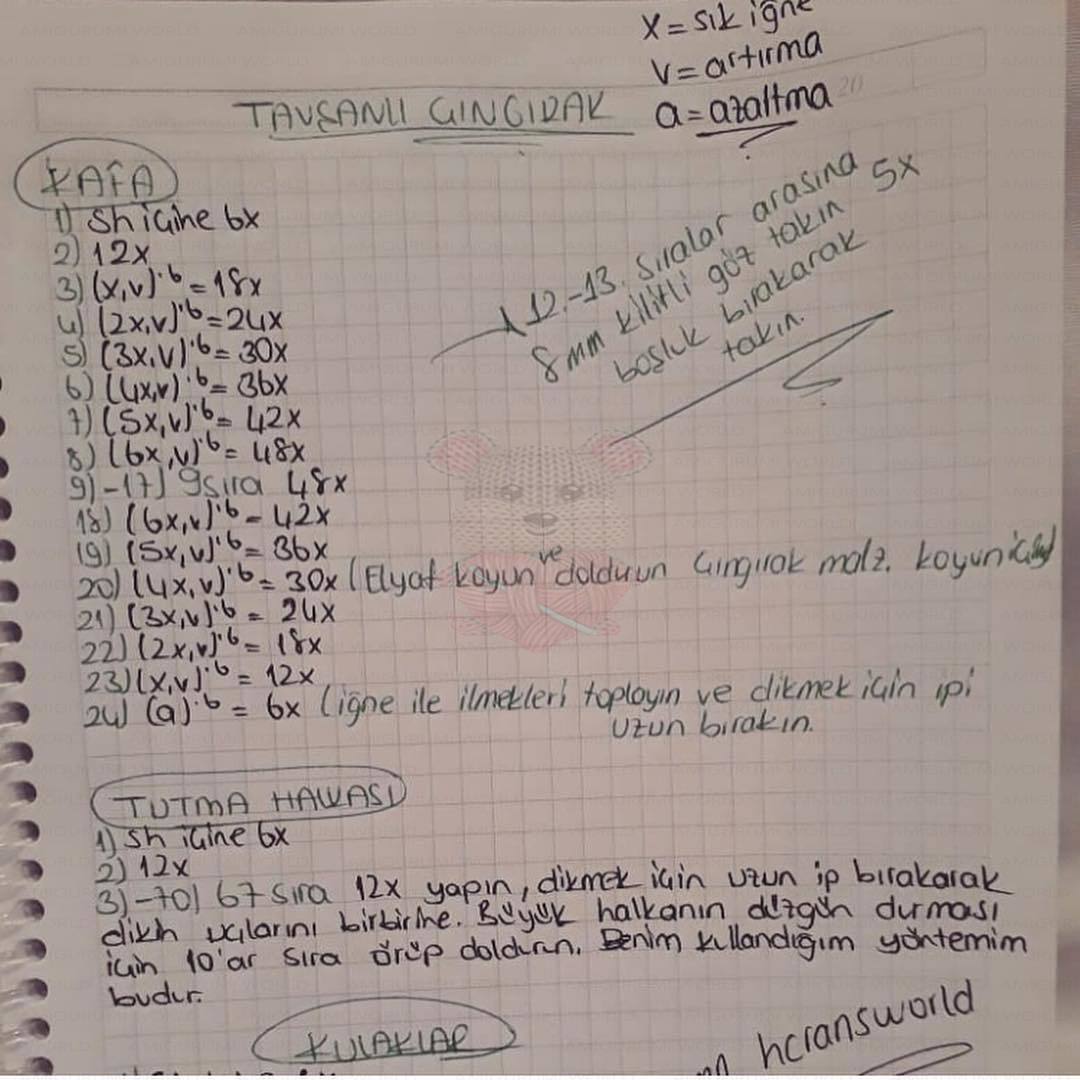 x = sık iğne
v = artırma
a = azaltma
TAVŞANLI ÇINGIRAK
KAFA
1) Sh içine 6x
2) 12x
3) (x,v)·6 = 18x
4) (2x,v)·6 = 24x
5) (3x,v)·6 = 30x
6) (4x,v)·6 = 36x
7) (5x,v)·6 = 42x
8) (6x,v)·6 = 48x
9)-17) 9 sıra 48x
12.-13. sıralar arasına
8mm kilitli göz takın 5x
boşluk bırakarak
takın.
18) (6x,v)·6 = 42x
19) (5x,v)·6 = 36x
20) (4x,v)·6 = 30x (Elyaf koyun ve doldurun çıngırak malz. koyun
21) (3x,v)·6 = 24x
22) (2x,v)·6 = 18x
23) (x,v)·6 = 12x
24) (a)·6 = 6x (iğne ile ilmekleri toplayın ve dikmek için ipi
uzun bırakın.
TUTMA HALKASI
1) Sh içine 6x
2) 12x
3)-70) 67 sıra 12x yapın, dikmek için uzun ip bırakarak
dikin uçlarını birbirine. Büyük halkanın düzgün durması
için 10'ar sıra örüp doldurun. Benim kullandığım yöntemim
budur.
KULAKLAR
hcransworld